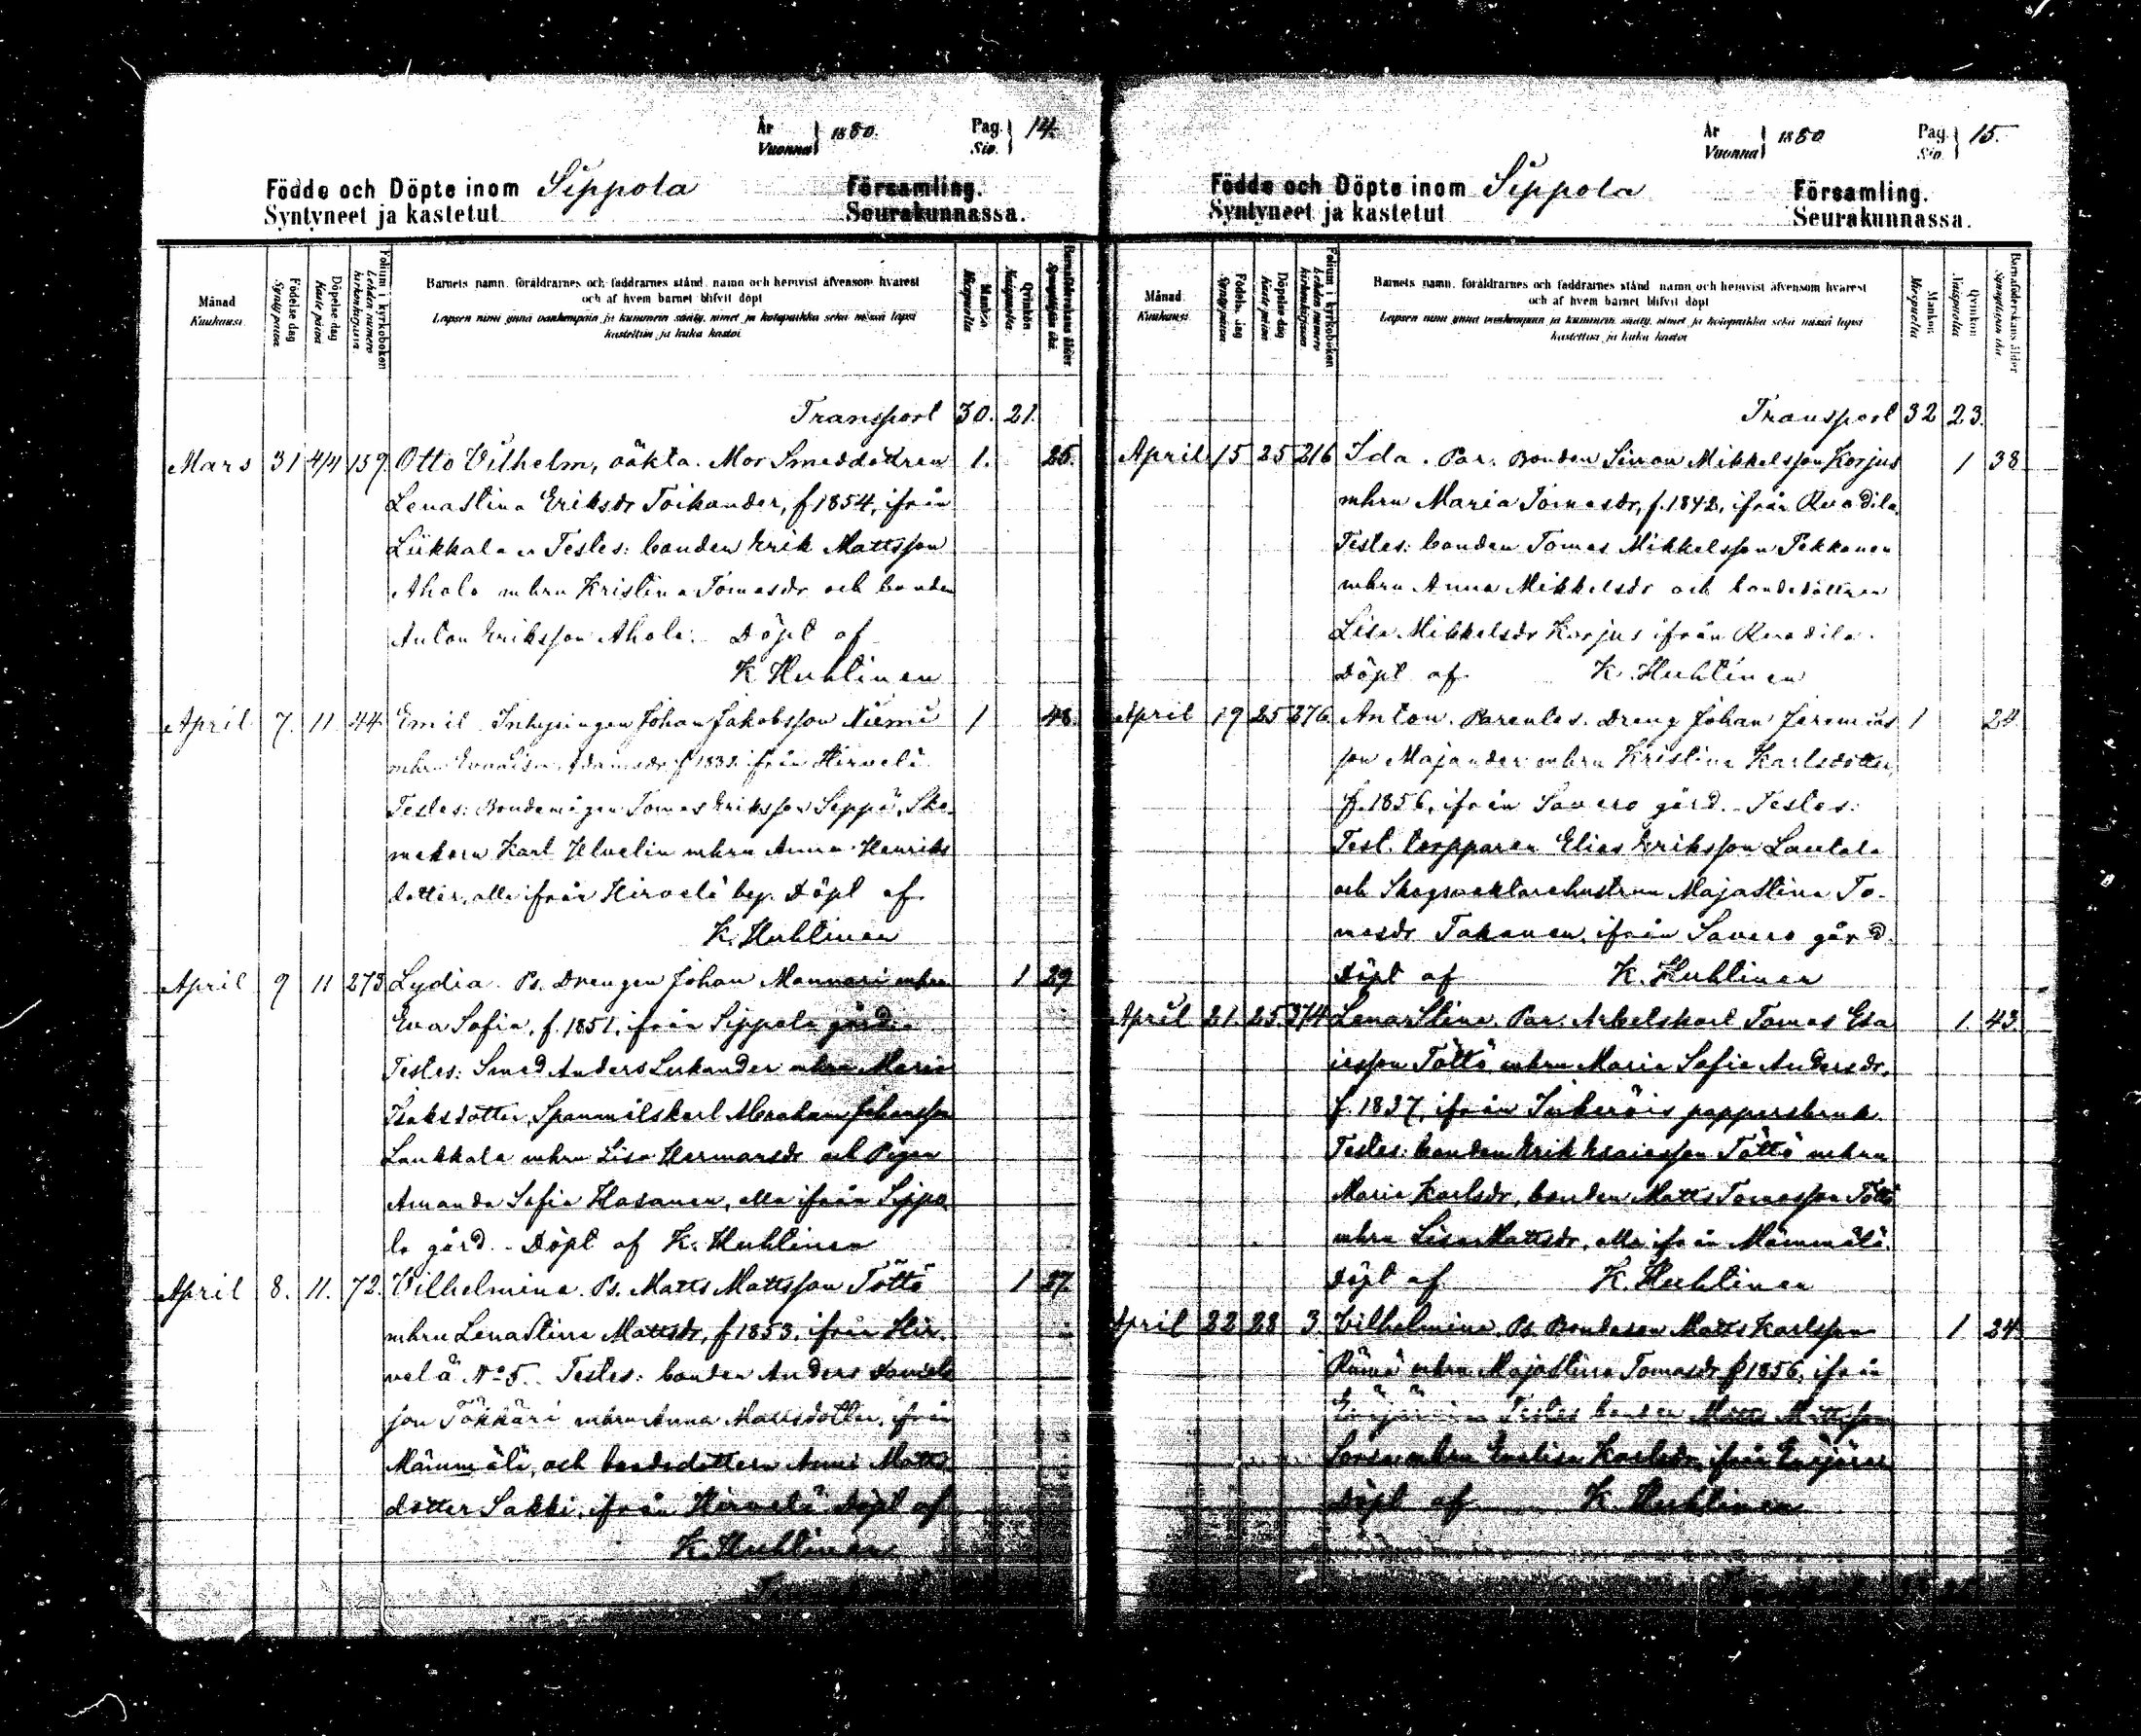 År
Vuonna } 1880. Pag.
Siv. } 14.
Födde och Döpte inom Sippola Församling.
Syntyneet ja kastetut Seurakunnassa.
Månad
Kuukausi
Födelse dag
Synty päivä
Döpelse dag
Kaste päivä
Folium i kyrkoboken
Lehden numero
kirkonkirjassa
Barnets namn, föräldrarnes och faddrarnes stånd, namn och hemvist äfvensom hvarest
och af hvem barnet blifvit döpt
Lapsen nimi ynnä vanhempain ja kummein sääty, nimet ja kotopaikka sekä missä lapsi
kastettiin ja kuka kastoi
Mankön
Miespuolia
Qvinkön
Vaispuolia
Barnaföderskans ålder
Synnyttäjän ikä
Transport 30. 21.
Mars 31 4/4 159 Otto Vilhelm, oäkta. Mor Smeddottren 1. 26.
Lenastina Eriksdr Toikander, f 1854, ifrån
Liikkala. Testes: bonden Erik Mattsson
Ahola mhru Kristina Tomasdr och bonden
Anton Eriksson Ahola. Döpt af
K Huhtinen
April 7. 11 44 Emil Inhysingen Johan Jakobsson Niemi 1 48.
mhru Evalisa Adamsdr f 1832 ifrån Hirvelä
Testes: Bondemågen Tomas Eriksson Seppä, Sko-
makarn Karl mhru Anna Henriks
dotter, alla ifrån Hirvelä by. Döpt af
K. Huhtinen
April 9 11 273 Lydia. Ps. Drengen Johan Mannari mhru 1 29
Eva Sofia, f. 1851, ifrån Sippola gård
Testes: Smed Anders mhru Maria
Isaksdotter, Spanmålskarl Abraham Johansson
Laukkala mhru Lisa Hermansdr och Pigan
Amanda Sofia Hasanen, alla ifrån Sippo-
la gård. Döpt af K. Huhtinen
April 8. 11. 72. Vilhelmina. Ps. Matts Mattsson Töttö 1 27.
mhru Lenastina Mattsdr, f 1853, ifrån Hir-
velä No 5. Testes: bonden Anders Daniels
son Tökkäri mhru Anna Mattsdotter, ifrån
Mämmälä, och bondedottern Anni Matts
dotter Sakki, ifrån Hirvelä Döpt af
K. Huhtinen
År
Vuonna } 1880 Pag.
Siv. } 15.
Födde och Döpte inom Sippola Församling.
Syntyneet ja kastetut Seurakunnassa.
Månad
Kuukausi
Födelse dag
Synty päivä
Döpelse dag
Kaste päivä
Folium i kyrkoboken
Lehden numero
kirkonkirjassa
Barnets namn, föräldrarnes och faddrarnes stånd, namn och hemvist äfvensom hvarest
och af hvem barnet blifvit döpt
Lapsen nimi ynnä vanhempain ja kummein sääty, nimet ja kotopaikka sekä missä lapsi
kastettiin ja kuka kastoi
Mankön
Miespuolia
Qvinkön
Vaispuolia
Barnaföderskans ålder
Synnyttäjän ikä
Transport 32 23.
April 15 25 216 Ida. Par. Bonden Simon Mikkelsson Korjus 1 38
mhru Maria Tomasdr, f. 1842, ifrån Ruotila.
Testes: bonden Tomas Mikkelsson Pekkanen
mhru Anna Mikkelsdr och bondedottren
Lisa Mikkelsdr Korjus ifrån Ruotila.
Döpt af K. Huhtinen
April 19 25 276. Anton. Parentes. Dreng Johan Jeremias 1 24.
son Majander mhru Kristina Karlsdotter,
f. 1856, ifrån Savero gård. Testes:
Test. torpparen Elias Eriksson Lautala
och Skogsvaktarehustrun Majastina To-
masdr Takanen, ifrån Savero gård.
Döpt af K. Huhtinen
April 21. 25. 374 Lenastina. Par. Arbetskarl Tomas Esa 1. 43.
iasson Töttö mhru Maria Sofia Andersdr.
f. 1837, ifrån Inkerois pappersbruk.
Testes: bonden Erik Esaiasson Töttö mhru
Maria Karlsdr, bonden Matts Tomasson Töttö
mhru Lisa Mattsdr, alla ifrån Mämmälä.
Döpt af K. Huhtinen
April 22 28 3. Vilhelmina. Ps. Bondeson Matts Karlsson 1 24
mhru Majastina Tomasdr f 1856, ifrån
Enäjärvi. Testes bonden Matts Mattsson
mhru Evalisa Karlsdr, ifrån Enäjärvi
Döpt af K. Huhtinen